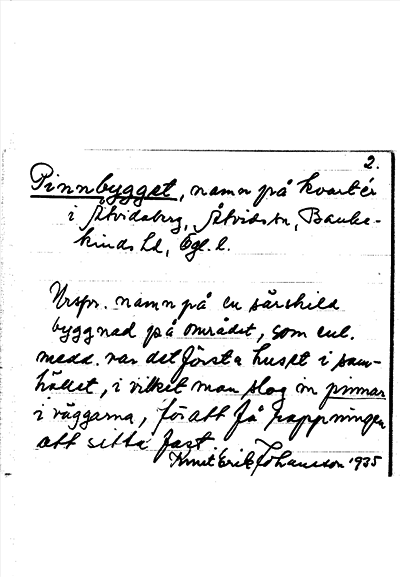 2.
Pinnbygget, namn på kvarter
i Åtvidaberg, Åtvids sn, Banke-
kinds hd, Ögl. l.
Urspr. namn på en särskild
byggnad på området, som enl.
medd. var det första huset i sam-
hället, i vilket man slog in pinnar
i väggarna, för att få rappningen
att sitta fast.
Knut Erik Johansson 1935